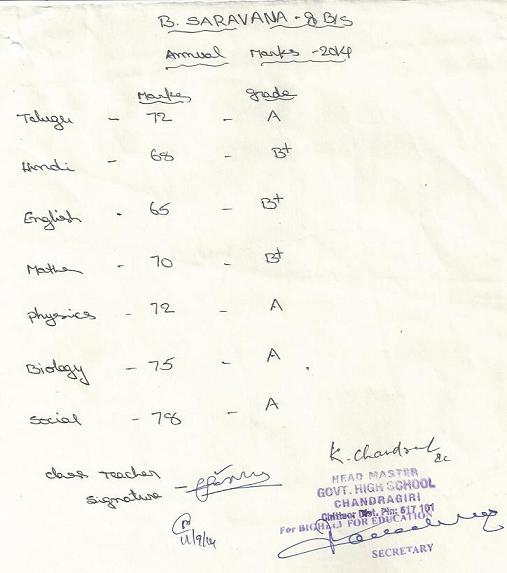 B. SARAVANA - 8 B/S
Annual Marks - 2014
Marks grade
Telugu - 72 - A
Hindi - 68 - B+
English - 65 - B+
Maths - 70 - B+
physics - 72 - A
Biology - 75 - A
Social - 78 - A
K. Chandra
class Teacher
Signature -
11/9/14
HEAD MASTER
GOVT. HIGH SCHOOL
CHANDRAGIRI
Chittoor Dist. Pin: 517 101
For BIGHALI FOR EDUCATION
SECRETARY